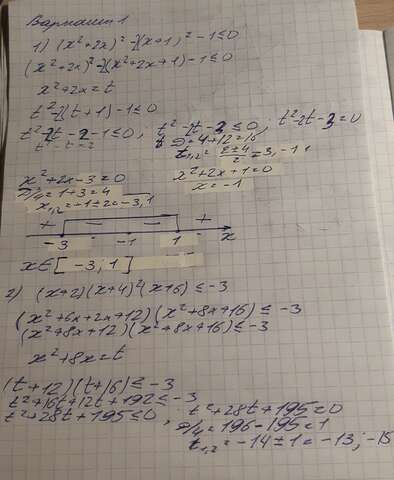 Вариант 1
1) (x²+2x)²-2(x+1)²-1≤0
(x²+2x)²-2(x²+2x+1)-1≤0
x²+2x=t
t²-2(t+1)-1≤0
t²-2t-2-1≤0; t²-2t-3≤0; t²-2t-3=0
D=4+12=16
t₁,₂=(2±4)/2=3,-1
x²+2x-3=0
D/4=1+3=4
x₁,₂=-1±2=-3,1
x²+2x+1=0
x=-1
+ - - +
-3 -1 1 x
x∈[-3;1]
2) (x+2)(x+4)²(x+6)≤-3
(x²+6x+2x+12)(x²+8x+16)≤-3
(x²+8x+12)(x²+8x+16)≤-3
x²+8x=t
(t+12)(t+16)≤-3
t²+16t+12t+192≤-3
t²+28t+195≤0; t²+28t+195=0
D/4=196-195=1
t₁,₂=-14±1=-13;-15